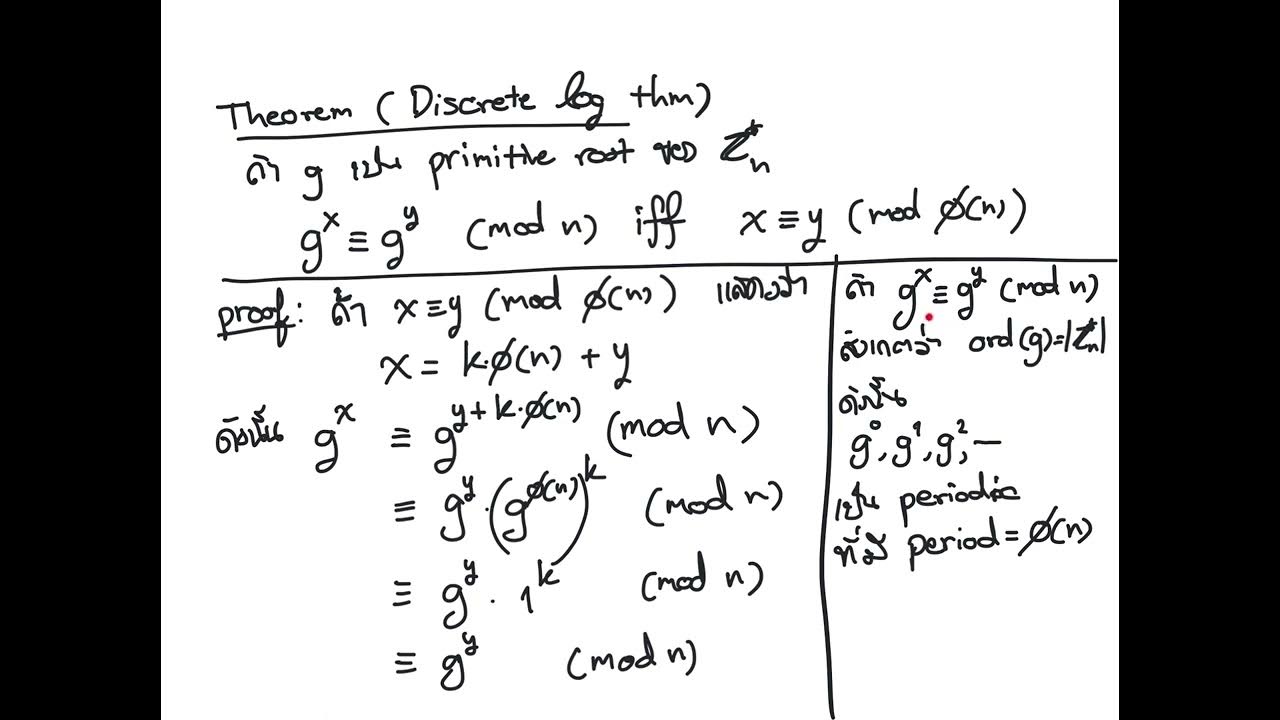 Theorem (Discrete log thm)
ถ้า g เป็น primitive root ของ ℤ*ₙ
gˣ ≡ gʸ (mod n) iff x ≡ y (mod ϕ(n))
proof: ถ้า x ≡ y (mod ϕ(n)) แสดงว่า
x = k·ϕ(n) + y
ดังนั้น gˣ ≡ g^{y + k·ϕ(n)} (mod n)
≡ gʸ · (g^{ϕ(n)})ᵏ (mod n)
≡ gʸ · 1ᵏ (mod n)
≡ gʸ (mod n)
ถ้า gˣ ≡ gʸ (mod n)
สังเกตว่า ord(g) = |ℤ*ₙ|
ดังนั้น
g⁰, g¹, g², —
เป็น periodic
ที่มี period = ϕ(n)